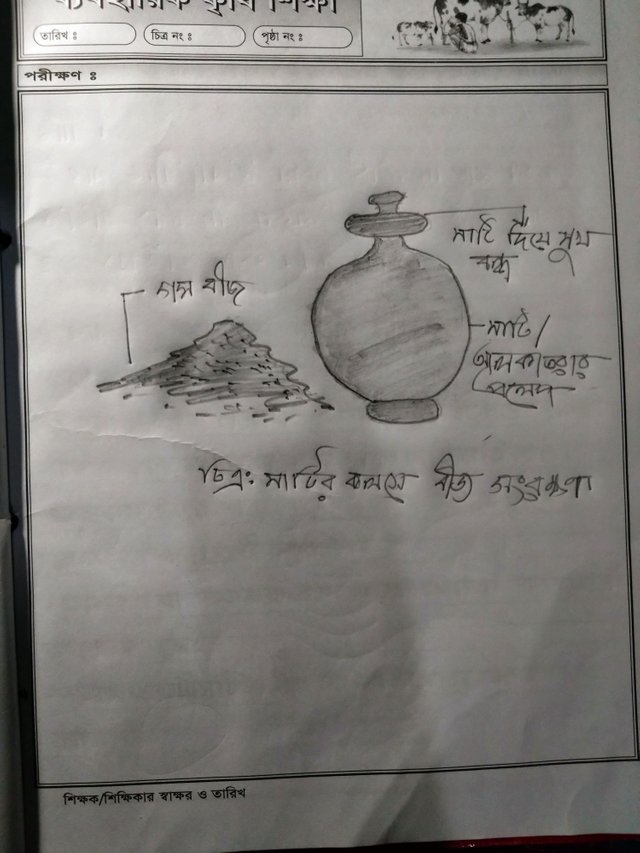 ব্যবহারিক কৃষি শিক্ষা
তারিখ ঃ
চিত্র নং ঃ
পৃষ্ঠা নং ঃ
পরীক্ষণ ঃ
মাটি দিয়ে মুখ
বন্ধ
গম বীজ
মাটি/
আলকাতরার
প্রলেপ
চিত্র: মাটির কলসে বীজ সংরক্ষণ
শিক্ষক/শিক্ষিকার স্বাক্ষর ও তারিখ